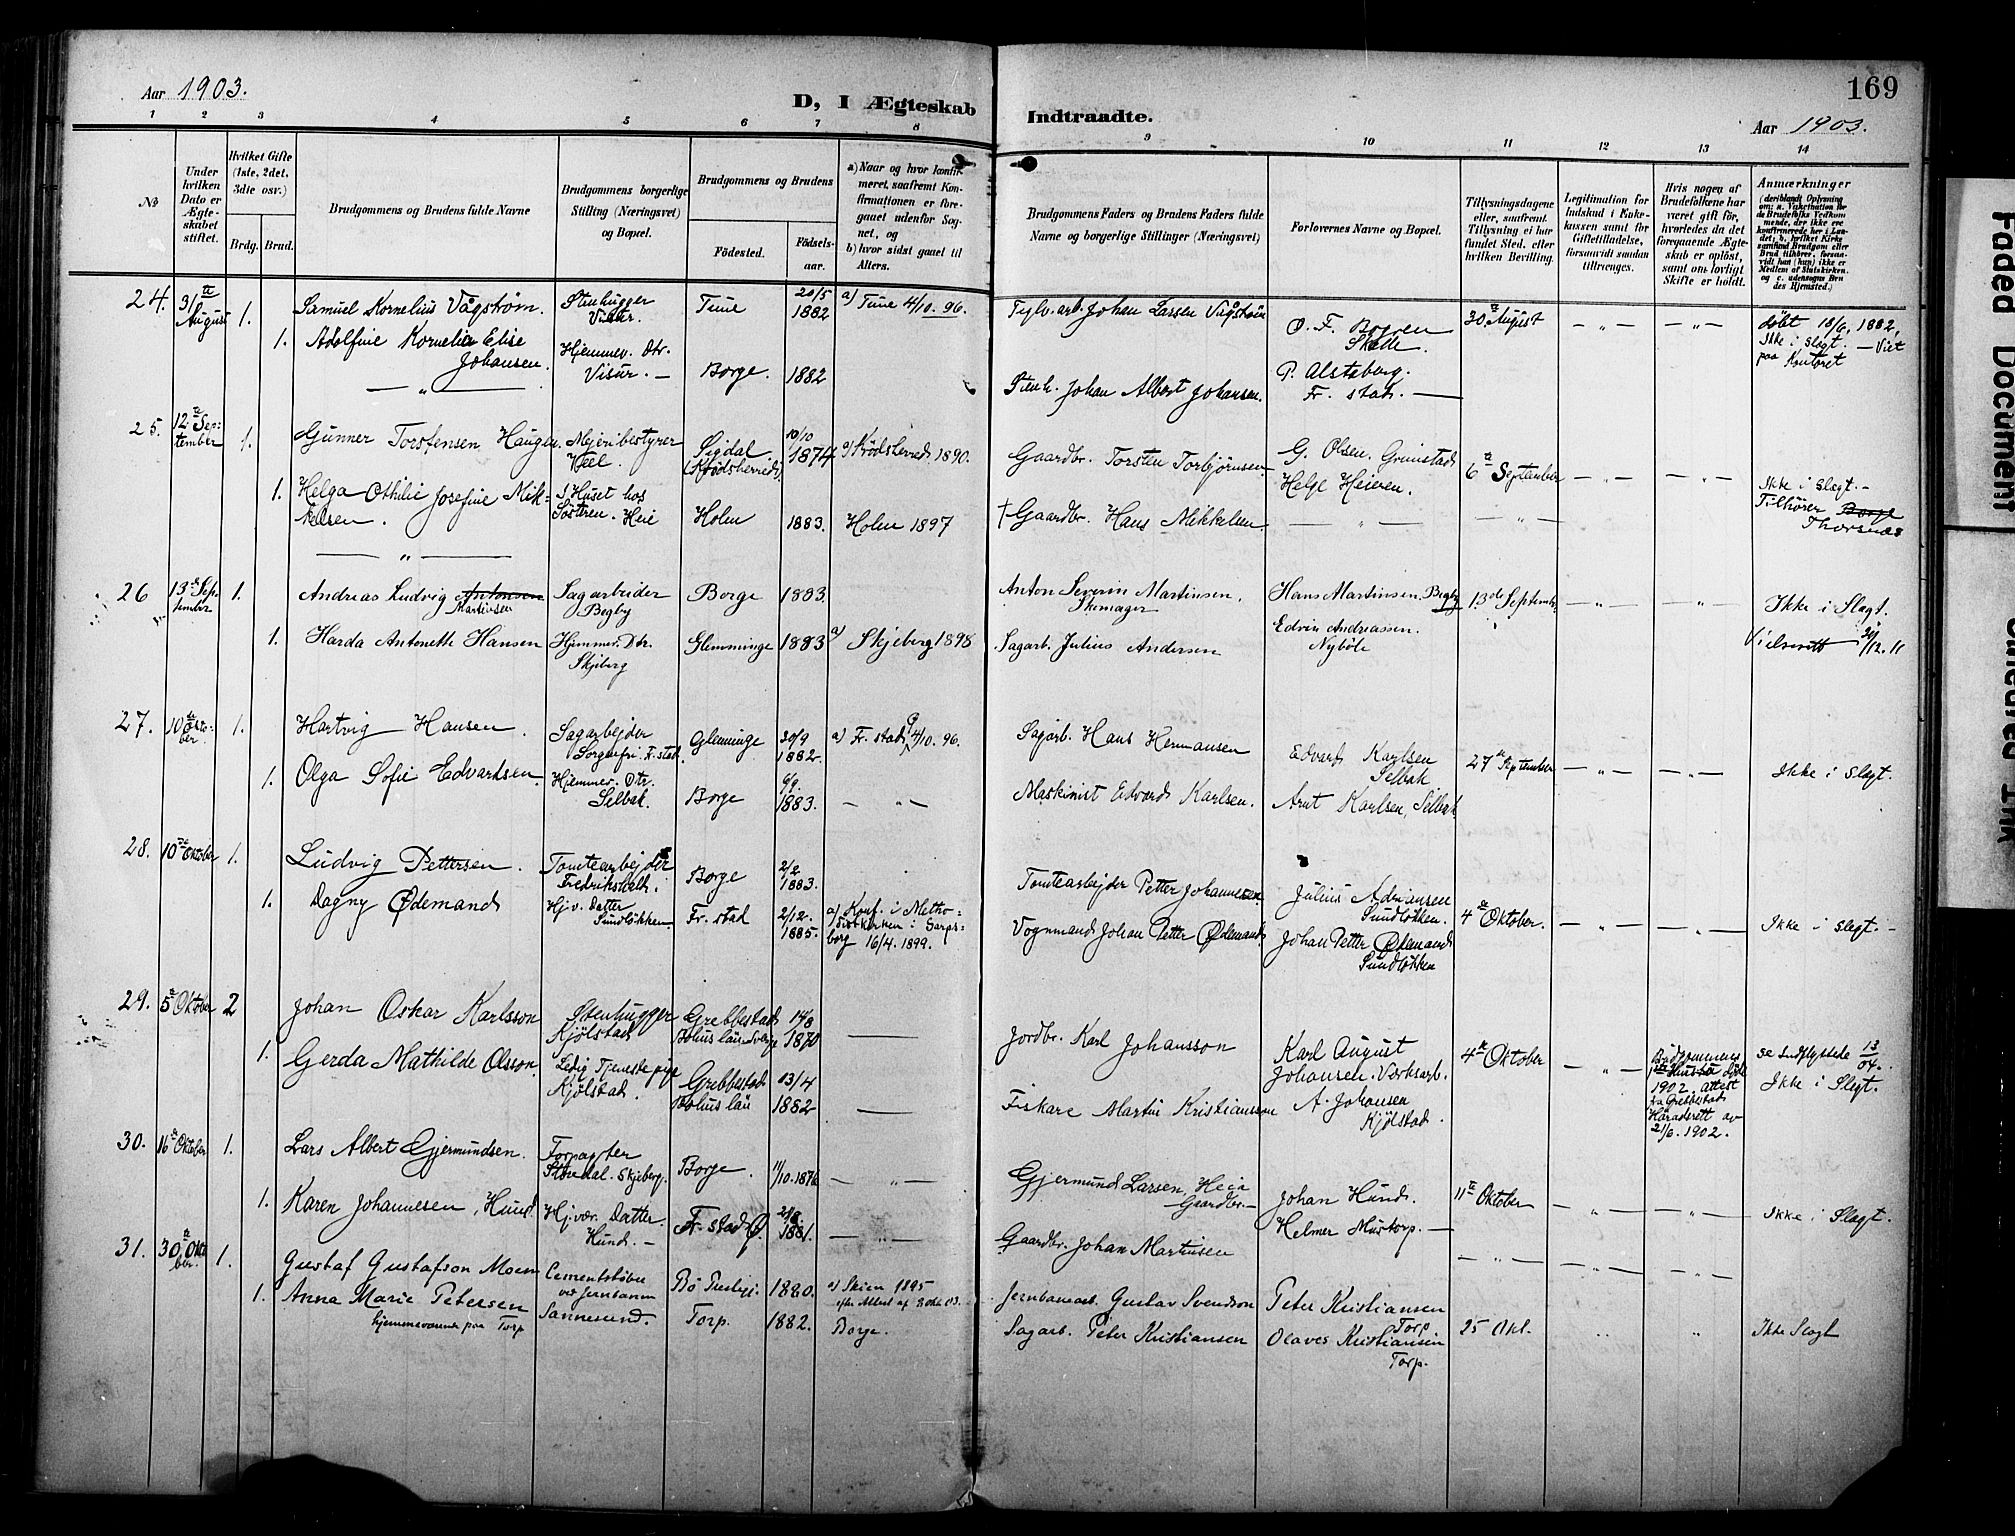 Aar 1903.
D, I Ægteskab
Indtraadte.
169
Aar 1903.
1 2 3 4 5 6 7 8 9 10 11 12 13 14
No
Under hvilken Dato er Ægteskabet stiftet.
Hvilket Gifte (1ste, 2det, 3die osv.)
Brdg. Brud.
Brudgommens og Brudens fulde Navne
Brudgommens borgerlige Stilling (Næringsvei) og Bopæl.
Brudgommens og Brudens
Fødested.
Fødselsaar.
a) Naar og hvor konfirmeret, saafremt Konfirmationen er foregaaet udenfor Sognet, og
b) hvor sidst gaaet til Alters.
Brudgommens Faders og Brudens Faders fulde Navne og borgerlige Stillinger (Næringsvei)
Forlovernes Navne og Bopæl.
Tillysningsdagene eller, saafremt Tillysning ei har fundet Sted, efter hvilken Bevilling.
Legitimation for Indskud i Enkekassen samt for Giftetilladelse, forsaavidt saadan tiltrænges.
Hvis nogen af Brudefolkene har været gift før, hvorledes da det foregaaende Ægteskab er opløst, samt om lovligt Skifte er holdt.
Anmærkninger
24. 31te August 1. Samuel Kornelius Vågstrøm. Stenhugger Tune 20/5 1882 a) Tune 4/10. 96.
1. Adolfine Kornelia Elise Johansen. Hjemmev. Dtr. Visur. — Borge. 1882
Johan Larsen Vågstrøm
Stenh. Johan Albert Johansen.
P. Alstaberg. Fr. stad. —
30te August
døbt 18/6, 1882,
Ikke i Slægt. — Viet
paa Kontoret
25. 12te September 1. Gunner Torstensen Haugen. Mejeribestyrer Sigdal (Krødsherred) 10/10 1874 a) Krødsherred 1890.
1. Helga Othilie Josefine Mikkelsen. I Huset hos Søsteren. Heie Holen 1883. Holen 1897
Gaardbr. Torsten Torbjørnsen —
† Gaardbr. Hans Mikkelsen.
G. Olsen. Grimstad
Helge Heieren.
6te September
Ikke i Slægt. —
Tilhører Borge
Thorsnæs
26 13de September 1. Andreas Ludvig Antonsen Martinsen Sagarbeider Begby Borge 1883.
1. Harda Antonette Hansen Hjemmev. Dtr. Skjeberg Glemminge 1883 a) Skjeberg 1898
Anton Severin Martinsen. Skomager
Sagarb. Julius Andersen
Hans Martinsen. Begby
Edvin Andreassen. Nybøle
13de September
Ikke i Slægt.
27. 10de October 1. Hartvig Hansen. Sagarbejder Sorgenfri. F.stad. Glemminge 20/9 1882. a) Fr. stad 4/10. 96.
1. Olga Sofie Edvardsen. Hjemmev. Dtr. Selbak. Borge 6/9. 1883. — „ —
Sagarb. Hans Hermansen
Maskinist Edvard Karlsen.
Edvard Karlsen Selbak
Arnt Karlsen, Selbak
27de September
Ikke i Slægt.
28. 10de Oktober 1. Ludvig Pettersen. Tomtearbejder Fredrikshald. Borge 2/2 1883.
1. Dagny Ødemand Hjv. Datter Sundløkken. Fr. stad 2/12. 1885. a) Konf. i Methodistkirken i Sarpsborg 16/4. 1899.
Tomtearbejder Petter Johannesen
Vognmand Johan Petter Ødemand
Julius Adriansen Sundløkken.
Johan Petter Ødemand Sundløkken
4de Oktober.
Ikke i Slægt. —
29. 5te Oktober 2 Johan Oskar Karlsson Stenhugger Kjölstad Grebbestad Bohus län Sverige 14/8 1870
1. Gerda Mathilde Olsson. Ledig Tjenestepige Kjölstad. Grebbestad Bohus län 13/4 1882
Jordbr. Karl Johansson
Fiskare Martin Kristiansson
Karl August Johansen. Værksarb.
A. Johansen Kjölstad.
4de Oktober
1902, attest fra Grebbestad Häradsrett av 21/6. 1902.
se Indflyttede 13/04.
Ikke i Slægt.
30. 16de Oktober 1. Lars Albert Gjermundsen. Forpagter Storedal. Skjeberg. Borge. 11/10. 1876 — „ —
1. Karen Johannesen, Hund. Hj.vær. Datter. Hund. — Fr. stad Ø. 1881. — „ —
Gjermund Larsen, Heie Gaardbr. —
Gaardbr. Johan Martinsen
Johan Hund.
Helmer Mustorp. —
11te Oktober
Ikke i Slægt.
31. 30te Oktober. 1. Gustaf Gustafson Moen Cementstøber ved Jernbanen Sannesund. Bø Prestegj. 1880. a) Skien 1895 efter Attest af 2 Okt 03.
1. Anna Marie Petersen hjemmeværende paa Torp Torp. 1882. Borge.
Jernbanearb. Gustav Svendson
Sagarb. Peter Kristiansen
Peter Kristiansen Torp
Olaves Kristiansen Torp.
25 Okt.
Ikke Slægt
Faded Document